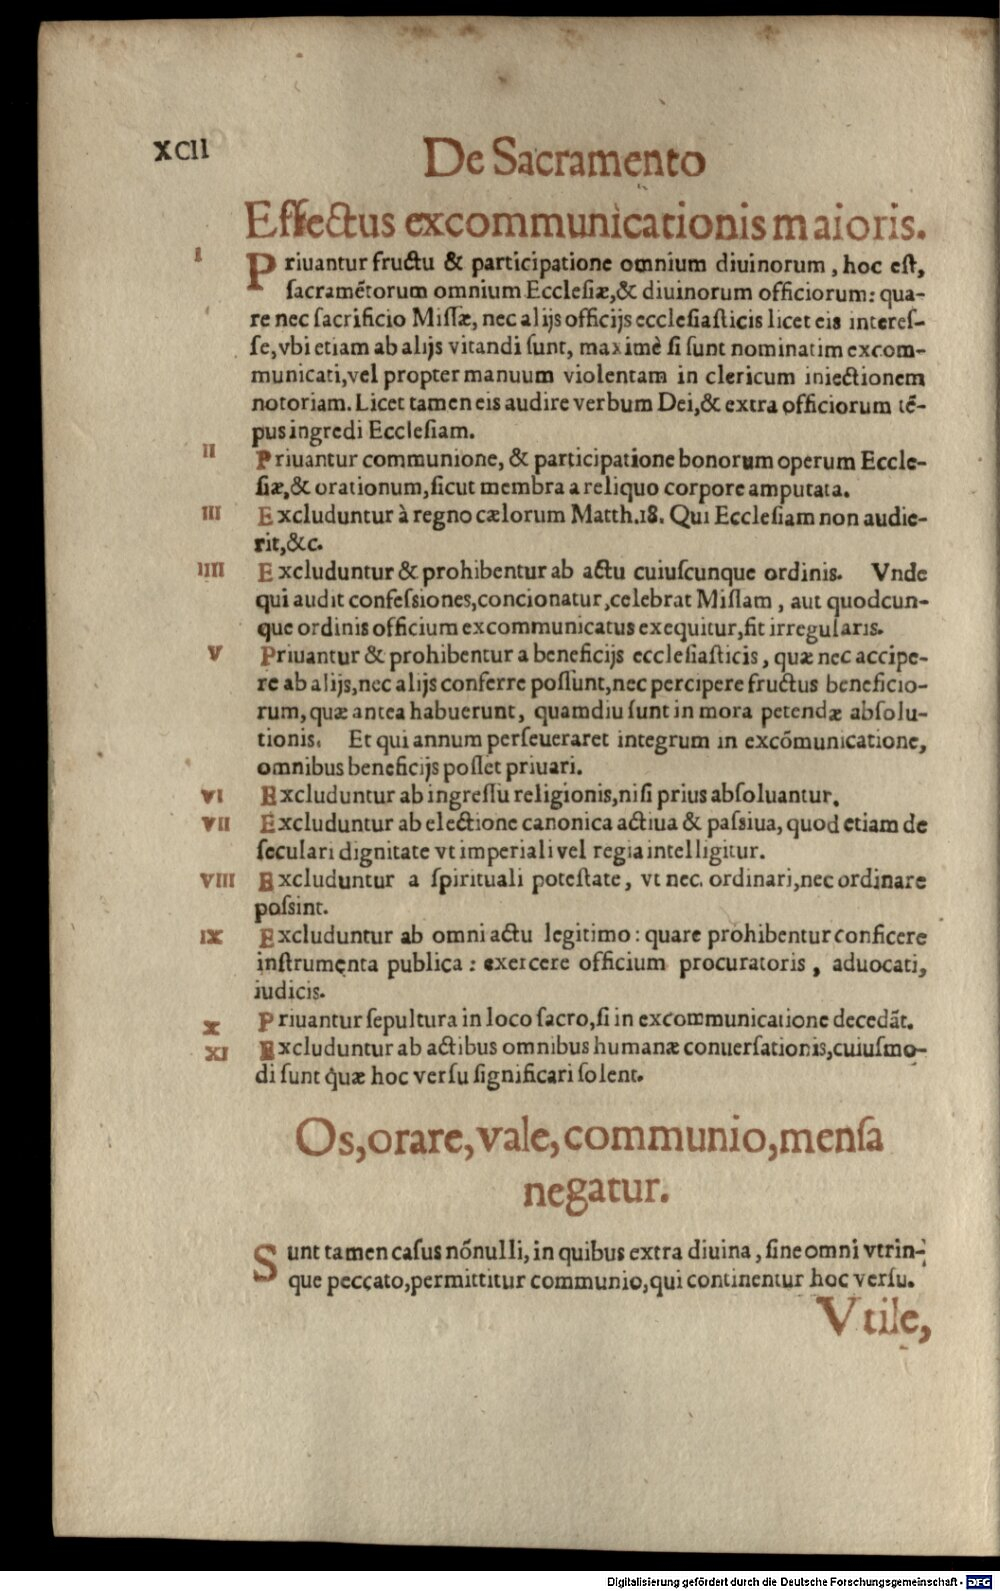 XCII
De Sacramento
Effectus excommunicationis maioris.
I
Priuantur fructu & participatione omnium diuinorum, hoc est,
sacramẽtorum omnium Ecclesiæ,& diuinorum officiorum: qua-
re nec sacrificio Missæ, nec alijs officijs ecclesiasticis licet eis interes-
se,vbi etiam ab alijs vitandi sunt, maximè si sunt nominatim excom-
municati,vel propter manuum violentam in clericum iniectionem
notoriam. Licet tamen eis audire verbum Dei,& extra officiorum tẽ-
pus ingredi Ecclesiam.
II Priuantur communione, & participatione bonorum operum Eccle-
siæ,& orationum,sicut membra a reliquo corpore amputata.
III Excluduntur à regno cælorum Matth.18. Qui Ecclesiam non audie-
rit,&c.
IIII Excluduntur & prohibentur ab actu cuiuscunque ordinis. Vnde
qui audit confessiones,concionatur,celebrat Missam, aut quodcun-
que ordinis officium excommunicatus exequitur,fit irregularis.
V Priuantur & prohibentur a beneficijs ecclesiasticis, quæ nec accipe-
re ab alijs,nec alijs conferre possunt,nec percipere fructus beneficio-
rum,quæ antea habuerunt, quamdiu sunt in mora petendæ absolu-
tionis. Et qui annum perseueraret integrum in excõmunicatione,
omnibus beneficijs posset priuari.
VI Excluduntur ab ingressu religionis,nisi prius absoluantur.
VII Excluduntur ab electione canonica actiua & passiua, quod etiam de
seculari dignitate vt imperiali vel regia intelligitur.
VIII Excluduntur a spirituali potestate, vt nec. ordinari,nec ordinare
possint.
IX Excluduntur ab omni actu legitimo: quare prohibentur conficere
instrumenta publica: exercere officium procuratoris, aduocati,
iudicis.
X Priuantur sepultura in loco sacro,si in excommunicatione decedãt.
XI Excluduntur ab actibus omnibus humanæ conuersationis,cuiusmo-
di sunt quæ hoc versu significari solent.
Os,orare,vale,communio,mensa
negatur.
Sunt tamen casus nõnulli, in quibus extra diuina, sine omni vtrin-
que peccato,permittitur communio,qui continentur hoc versu.
Vtile,
Digitalisierung gefördert durch die Deutsche Forschungsgemeinschaft - DFG